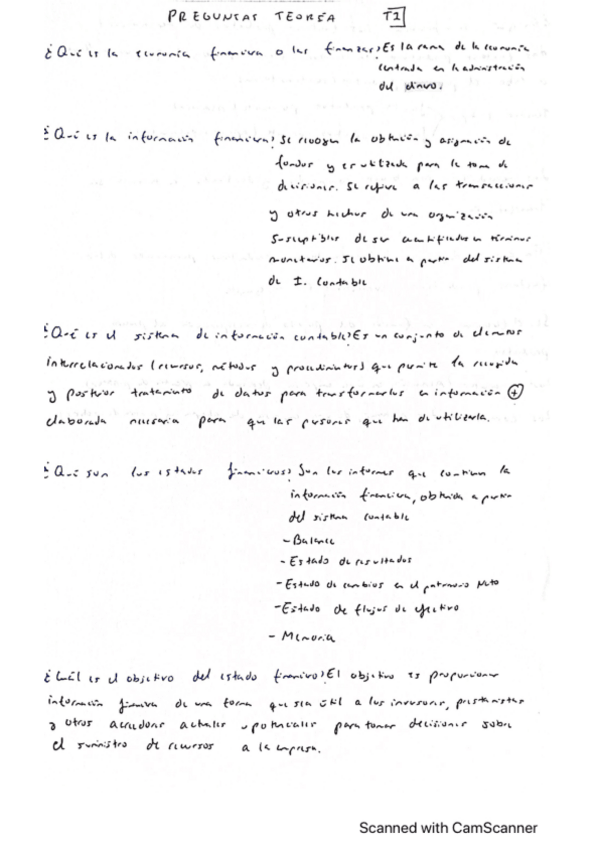 PREGUNTAS TEORÍA T1
¿Qué es la economía financiera o las finanzas? Es la rama de la economía
centrada en la administración
del dinero.
¿Qué es la información financiera? Se recogen la obtención y asignación de
fondos y es utilizada para la toma de
decisiones. Se refiere a las transacciones
y otros hechos de una organización
susceptibles de ser cuantificados en términos
monetarios. Se obtiene a partir del sistema
de I. Contable
¿Qué es el sistema de información contable? Es un conjunto de elementos
interrelacionados (recursos, métodos y procedimientos) que permite la recogida
y posterior tratamiento de datos para transformarlos en información +
elaborada necesaria para que las personas que han de utilizarla.
¿Qué son los estados financieros? Son los informes que contienen la
información financiera, obtenida a partir
del sistema contable
- Balance
- Estado de resultados
- Estado de cambios en el patrimonio neto
- Estado de flujos de efectivo
- Memoria
¿Cuál es el objetivo del estado financiero? El objetivo es proporcionar
información financiera de una forma que sea útil a los inversores, prestamistas
y otros acreedores actuales o potenciales para tomar decisiones sobre
el suministro de recursos a la empresa.
Scanned with CamScanner